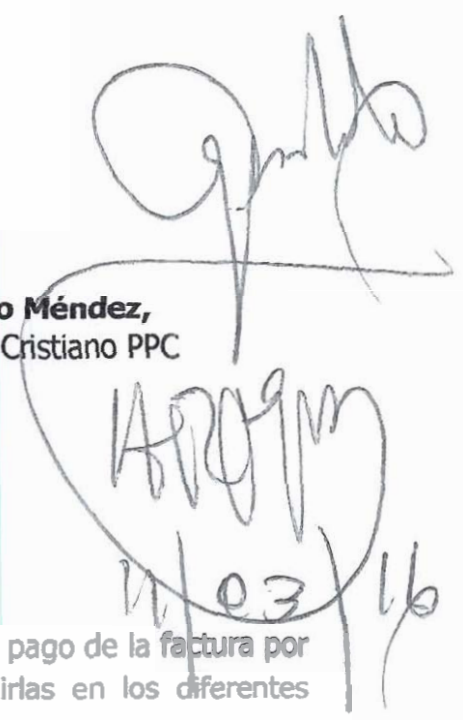 o Méndez,
Cristiano PPC
11/03/16
pago de la factura por
irlas en los diferentes